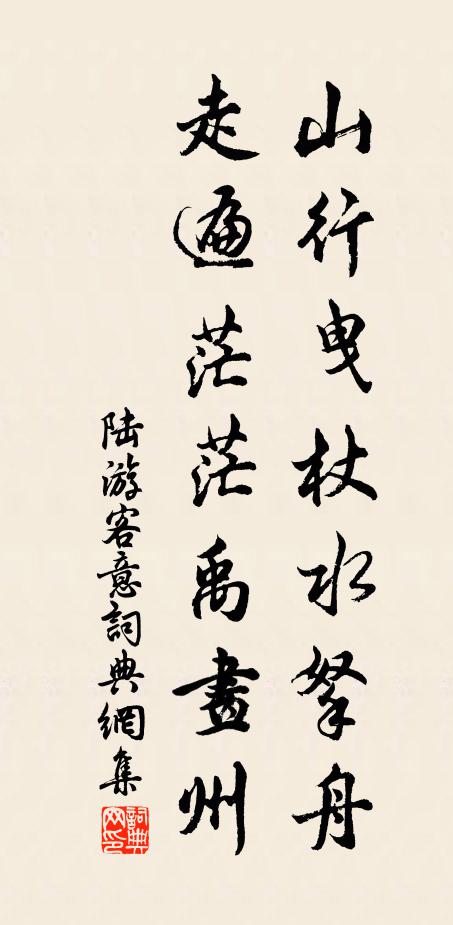 山行曳杖水拏舟
走遍茫茫禹畫州
陆游客意詞典網集
詞典网印